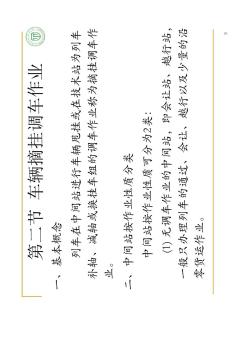 第二节 车辆摘挂调车作业
一、基本概念
列车在中间站进行车辆甩挂或在技术站为列车
补轴、减轴或换挂车组的调车作业称为摘挂调车作
业。
二、中间站按作业性质分类
中间站按作业性质可分为2类：
(1) 无调车作业的中间站，即会让站、越行站，
一般只办理列车的通过、会让、越行以及少量的沿
零货运作业。